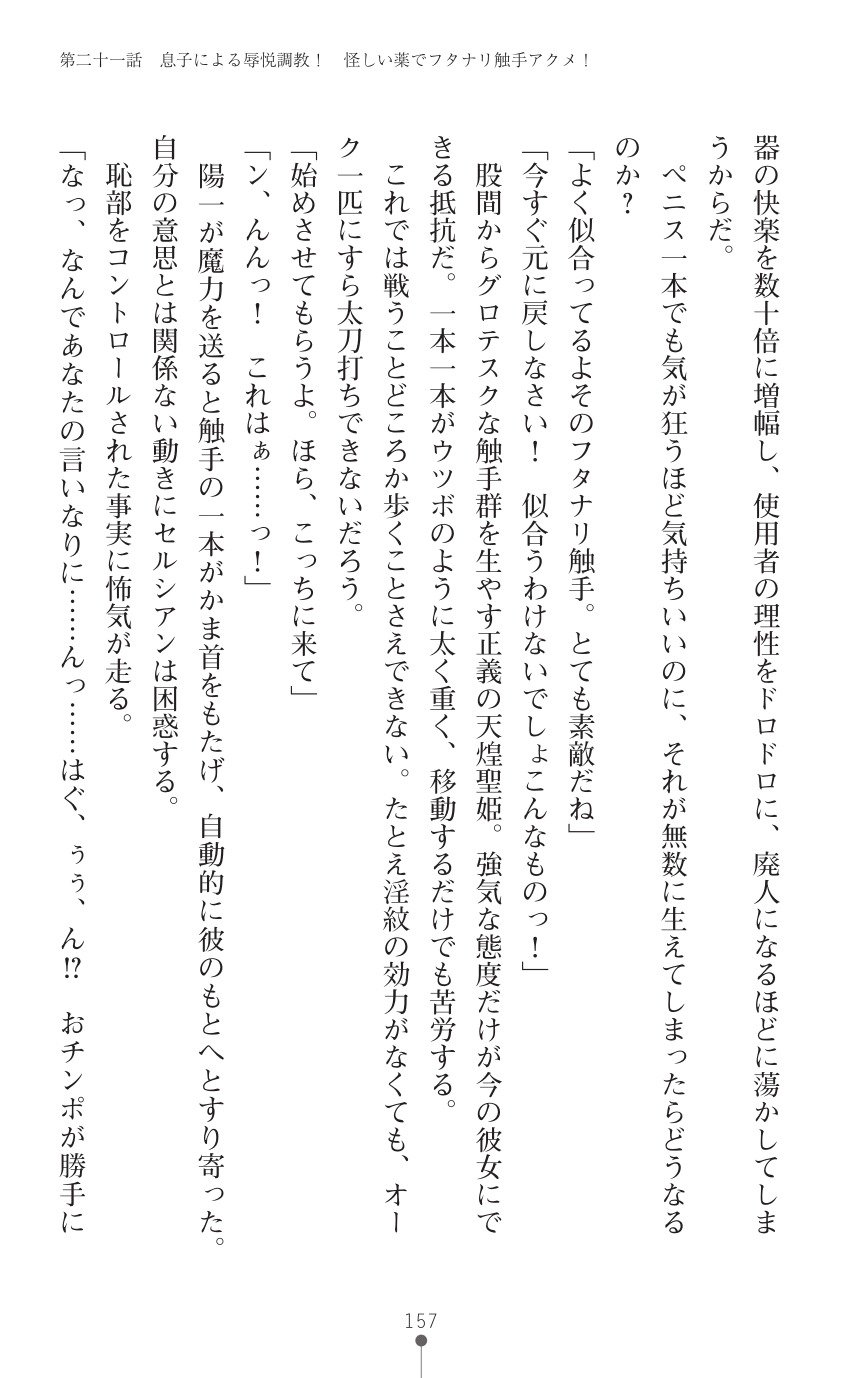 第二十一話　息子による辱悦調教！　怪しい薬でフタナリ触手アクメ！
器の快楽を数十倍に増幅し、使用者の理性をドロドロに、廃人になるほどに蕩かしてしま
うからだ。
　ペニス一本でも気が狂うほど気持ちいいのに、それが無数に生えてしまったらどうなる
のか？
「よく似合ってるよそのフタナリ触手。とても素敵だね」
「今すぐ元に戻しなさい！　似合うわけないでしょこんなものっ！」
　股間からグロテスクな触手群を生やす正義の天煌聖姫。強気な態度だけが今の彼女にで
きる抵抗だ。一本一本がウツボのように太く重く、移動するだけでも苦労する。
　これでは戦うことどころか歩くことさえできない。たとえ淫紋の効力がなくても、オー
ク一匹にすら太刀打ちできないだろう。
「始めさせてもらうよ。ほら、こっちに来て」
「ン、んんっ！　これはぁ……っ！」
　陽一が魔力を送ると触手の一本がかま首をもたげ、自動的に彼のもとへとすり寄った。
自分の意思とは関係ない動きにセルシアンは困惑する。
　恥部をコントロールされた事実に怖気が走る。
「なっ、なんであなたの言いなりに……んっ……はぐ、ぅぅ、ん!?　おチンポが勝手に
157